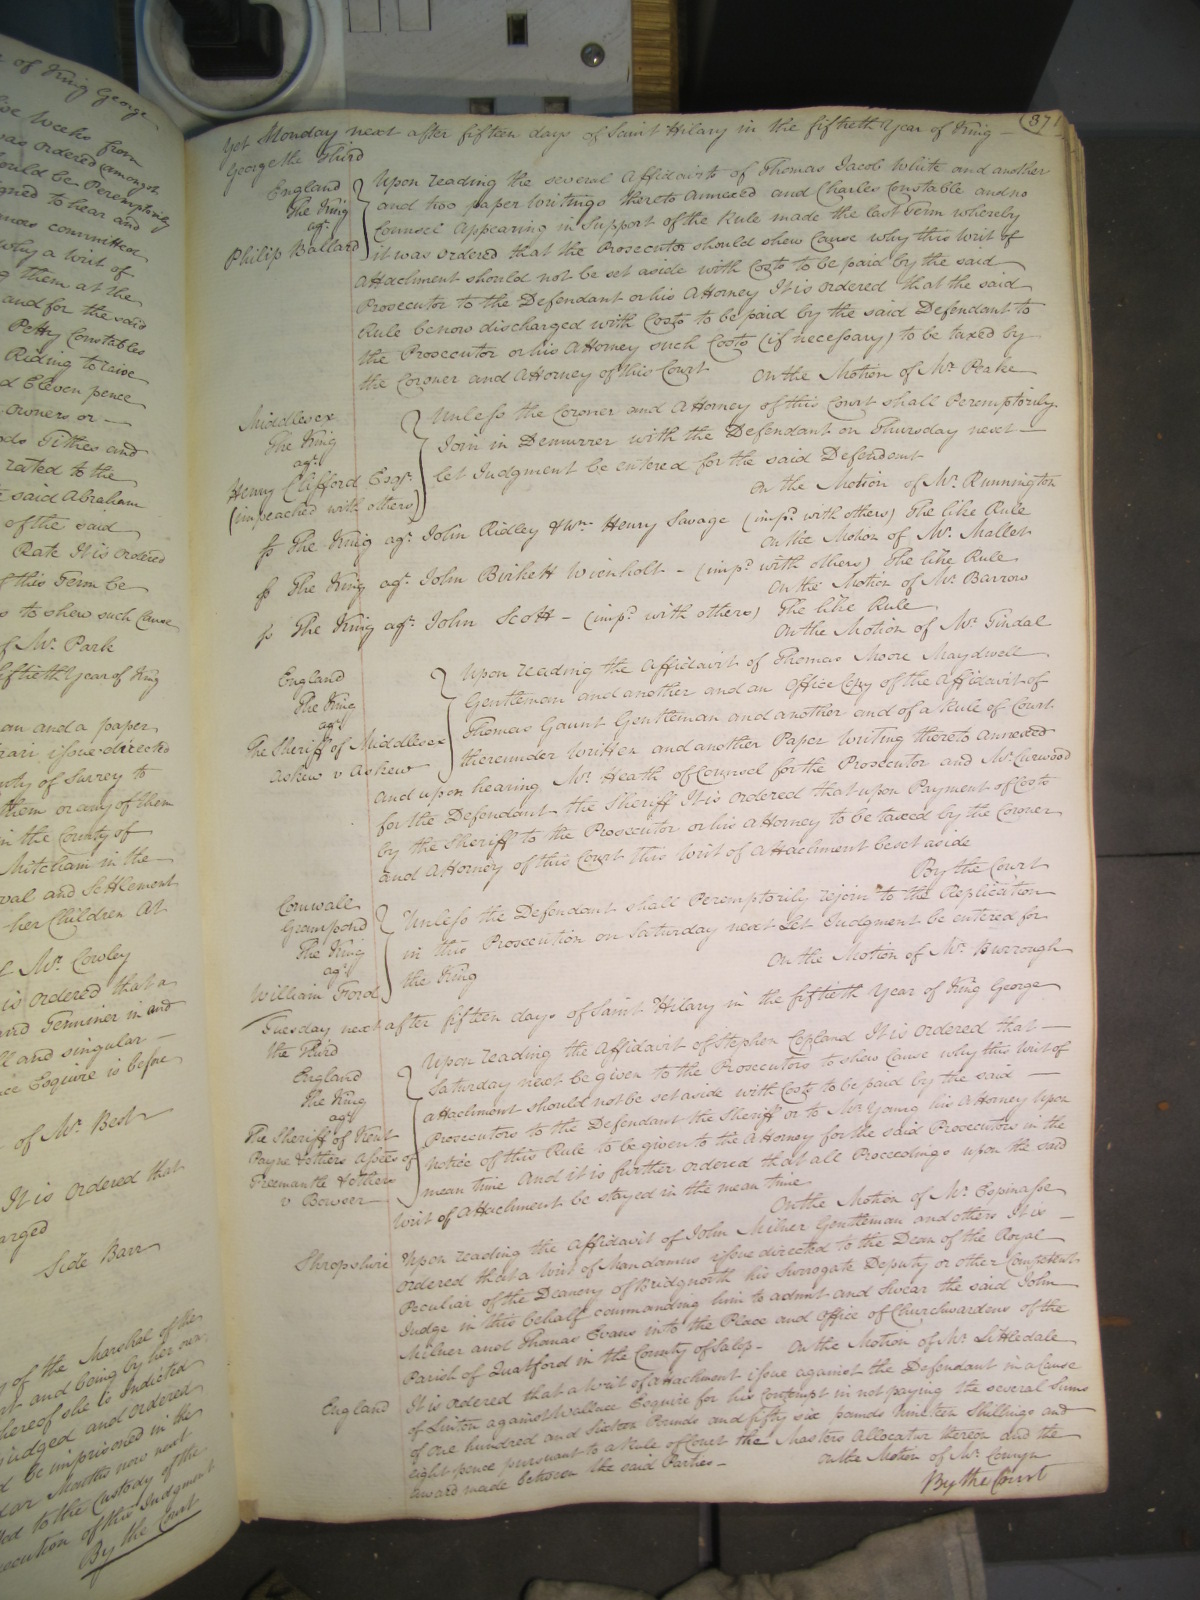 of King George
five Weeks from
was ordered (amongst
should be Peremptorily
signed to hear and
committed
why a Writ of
them at the
and for the said
Petty Constables
Riding to raise
d Eleven pence
Owners or
Tithes and
rated to the
said Abraham
of the said
Rate It is Ordered
this Term be
to shew such Cause
of Mr. Park
fiftieth Year of King
an and a paper
issue directed
County of Surrey to
them or any of them
in the County of
Mitcham in the
and Settlement
her Children At
Mr. Cowley
is ordered that a
and Terminer in and
all and singular
Esquire is before
of Mr. Best
It is Ordered that
Side Barr
of the Marshal of the
and being by her
hereof she is Indicted
judged and Ordered
be imprisoned in the
Months now next
to the Custody of the
Execution of this Judgment
By the Court
371
Yet Monday next after fifteen days of Saint Hilary in the fiftieth Year of King
George the Third
England
The King
agt.
Philip Ballard
Upon reading the several Affidavits of Thomas Jacob White and another
and two paper Writings thereto Annexed and Charles Constable and no
Counsel Appearing in Support of the Rule made the last Term whereby
it was ordered that the Prosecutor should shew Cause why this Writ of
Attachment should not be set aside with Costs to be paid by the said
Prosecutor to the Defendant or his Attorney It is ordered that the said
Rule be now discharged with Costs to be paid by the said Defendant to
the Prosecutor or his Attorney such Costs (if necessary) to be taxed by
the Coroner and Attorney of this Court On the Motion of Mr. Peake
Middlesex
The King
agt.
Henry Clifford Esqr.
(impeached with others)
Unless the Coroner and Attorney of this Court shall Peremptorily
Join in Demurrer with the Defendant on Thursday next
let Judgment be entered for the said Defendant
On the Motion of Mr. Runnington
The King agt. John Ridley & Wm. Henry Savage (impd. with others) The like Rule
On the Motion of Mr. Mallet
The King agt. John Birkett Wienholt - (impd. with others) The like Rule
On the Motion of Mr. Barrow
The King agt. John Scott - (impd. with others) The like Rule
On the Motion of Mr. Tindal
England
The King
agt.
The Sheriff of Middlesex
Askew v Askew
Upon reading the Affidavit of Thomas Moore Maydwell
Gentleman and another and an Office Copy of the Affidavit of
Thomas Gaunt Gentleman and another and of a Rule of Court
thereunder Written and another Paper Writing thereto Annexed
And upon hearing Mr. Heath of Counsel for the Prosecutor and Mr. Curwood
for the Defendant the Sheriff It is Ordered that upon Payment of Costs
by the Sheriff to the Prosecutor or his Attorney to be taxed by the Coroner
and Attorney of this Court This Writ of Attachment be set aside
By the Court
Cornwall
Grampond
The King
agt.
William Ford
Unless the Defendant shall Peremptorily rejoin to the Replication
in this Prosecution on Saturday next Let Judgment be entered for
the King On the Motion of Mr. Burrough
Tuesday next after fifteen days of Saint Hilary in the fiftieth Year of King George
the Third
England
The King
agt.
The Sheriff of Kent
Payne & others Assees of
Freemantle & others
v Bowser
Upon reading the Affidavit of Stephen Copland It is ordered that
Saturday next be given to the Prosecutors to shew Cause why this Writ of
attachment should not be set aside with Costs to be paid by the said
Prosecutors to the Defendant the Sheriff or to Mr. Young his Attorney Upon
notice of this Rule to be given to the Attorney for the said Prosecutors in the
mean time And it is further ordered that all Proceedings upon the said
Writ of Attachment be stayed in the mean time
On the Motion of Mr. Espinasse
Shropshire
Upon reading the Affidavit of John Milner Gentleman and others It is
ordered that a Writ of Mandamus issue directed to the Dean of the Royal
Peculiar of the Deanery of Bridgnorth his Surrogate Deputy or other Competent
Judge in this behalf commanding him to admit and Swear the said John
Milner and Thomas Evans into the Place and Office of Churchwardens of the
Parish of Quatford in the County of Salop - On the Motion of Mr. Littledale
England
It is ordered that a Writ of Attachment issue against the Defendant in a Cause
of Linton against Wallace Esquire for his Contempt in not paying the several Sums
of one hundred and sixteen Pounds and fifty six pounds Nineteen Shillings and
eight pence pursuant to a Rule of Court the Masters Allocatur thereon and the
Award made between the said Parties - On the Motion of Mr.
By the Court